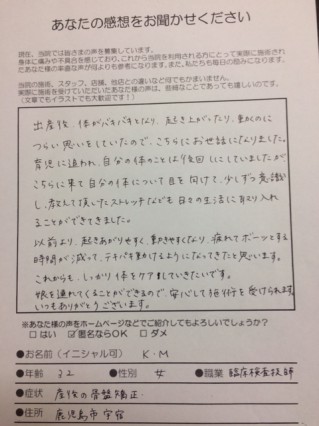 あなたの感想をお聞かせください
現在、当院では皆さまの声を募集しています。
身体に痛みや不具合を感じており、これから当院を利用される方にとって実際に施術され
たあなた様の率直な声が何よりも参考になります。また、私たちも毎日の励みになります。
当院の施術、スタッフ、店舗、他店との違いなど何でもかまいません。
実際に施術を受けていただいたあなた様の声は、些細なことであっても嬉しいのです。
（文章でもイラストでも大歓迎です！）
出産後、体がバキバキとなり、起き上がったり、動くのに
つらい思いをしていたので、こちらにお世話になりました。
育児に追われ、自分の体のことは後回しにしていましたが
こちらに来て自分の体について目を向けて、少しずつ意識
し、教えて頂いたストレッチなども日々の生活に取り入れ
ることができてきました。
以前より、起きあがりやすく、動きやすくなり、疲れてボーッとする
時間が減って、テキパキ動けるようになってきたと思います。
これからも、しっかり体をケアしていきたいです。
娘を連れてくることができるので、安心して施術を受けられます。
いつもありがとうございます。
※あなた様の声をホームページなどでご紹介してもよろしいでしょうか？
□ はい ☑ 匿名ならOK □ ダメ
●お名前（イニシャル可） K・M
●年齢 32 ●性別 女 ●職業 臨床検査技師
●症状 産後の骨盤矯正
●住所 鹿児島市宇宿